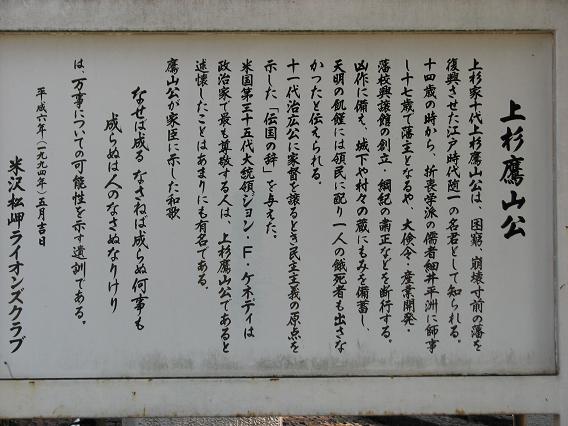 上杉鷹山公
上杉家十代上杉鷹山公は、困窮、崩壊寸前の藩を
復興させた江戸時代随一の名君として知られる。
十四歳の時から、折衷学派の儒者細井平洲に師事
し十七歳で藩主となるや、大倹令・産業開発・
藩校興譲館の創立・綱紀の粛正などを断行する。
凶作に備え、城下や村々の蔵にもみを備蓄し、
天明の飢饉には領民に配り一人の餓死者も出さな
かったと伝えられる。
十一代治広公に家督を譲るとき民主主義の原点を
示した「伝国の辞」を与えた。
米国第三十五代大統領ジョン・F・ケネディは
政治家で最も尊敬する人は、上杉鷹山公であると
述懐したことはあまりにも有名である。
鷹山公が家臣に示した和歌
なせば成る なさねば成らぬ何事も
成らぬは人のなさぬなりけり
は、万事についての可能性を示す遺訓である。
平成六年(一九九四年)五月吉日
米沢松岬ライオンズクラブ